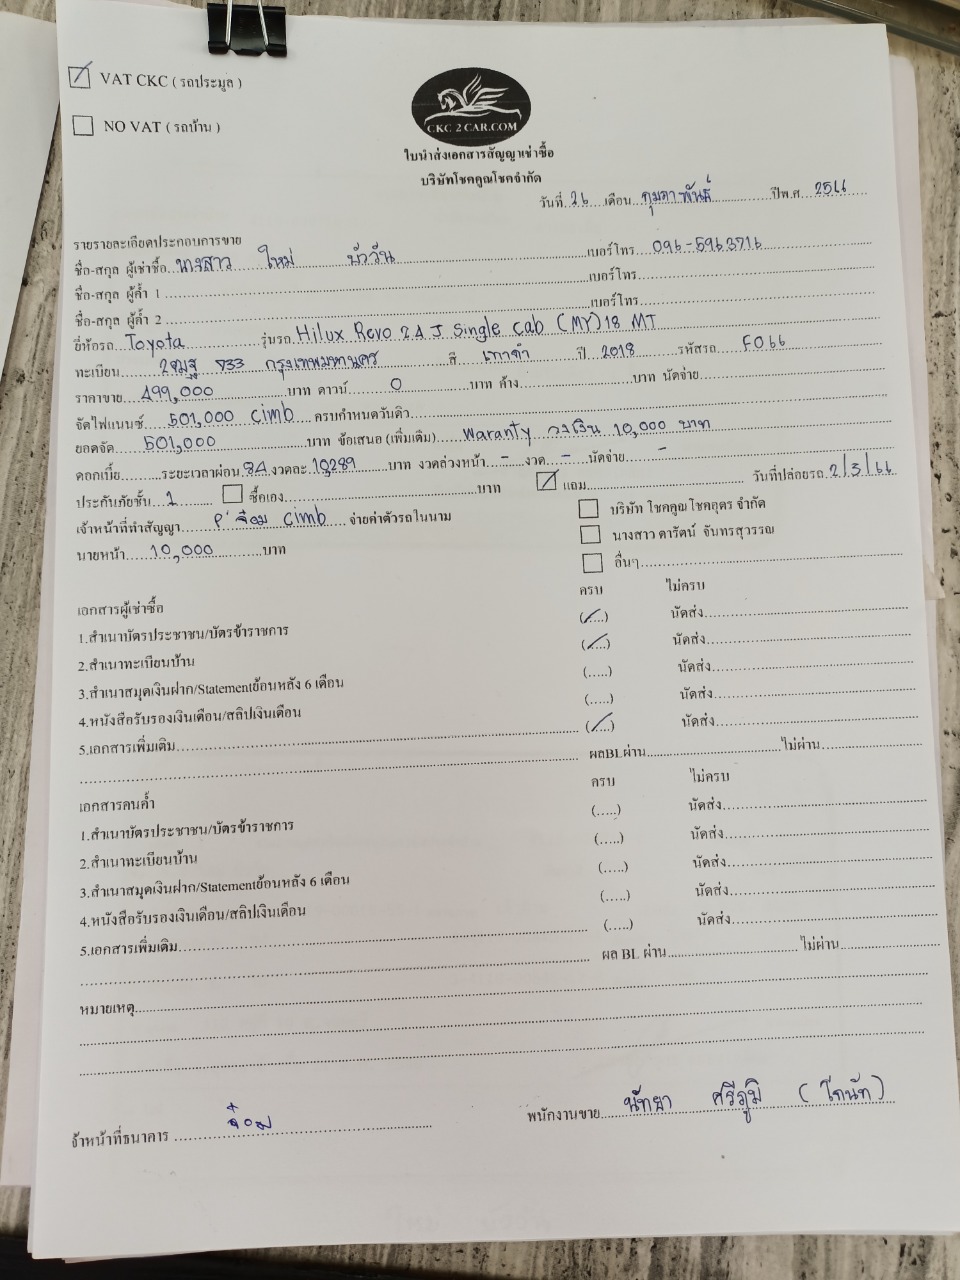 VAT CKC ( รถประมูล )
NO VAT ( รถบ้าน )
CKC 2 CAR.COM
ใบนำส่งเอกสารสัญญาเช่าซื้อ
บริษัทโชคคูณโชคจำกัด
วันที่ 26 เดือน กุมภาพันธ์ ปีพ.ศ. 2566
รายรายละเอียดประกอบการขาย
ชื่อ-สกุล ผู้เช่าซื้อ นางสาว ใหม่ บัววัน เบอร์โทร 096-5963716
ชื่อ-สกุล ผู้ค้ำ 1 เบอร์โทร
ชื่อ-สกุล ผู้ค้ำ 2 เบอร์โทร
ยี่ห้อรถ Toyota รุ่นรถ Hilux Revo 2.4 J Single Cab (MY) 18 MT
ทะเบียน 833 กรุงเทพมหานคร สี เทาดำ ปี 2018 รหัสรถ F066
ราคาขาย 499,000 บาท ดาวน์ 0 บาท ค้าง บาท นัดจ่าย
จัดไฟแนนซ์ 501,000 cimb ครบกำหนดวันคิว
ยอดจัด 501,000 บาท ข้อเสนอ (เพิ่มเติม) Waranty วงเงิน 10,000 บาท
ดอกเบี้ย ระยะเวลาผ่อน 84 งวดละ 10,289 บาท งวดล่วงหน้า - งวด - นัดจ่าย -
ประกันภัยชั้น 1 ซื้อเอง บาท แถม วันที่ปล่อยรถ 2/3/66
เจ้าหน้าที่ทำสัญญา P'จ๋อม cimb จ่ายค่าตัวรถในนาม
บริษัท โชคคูณโชคอุตร จำกัด
นายหน้า 10,000 บาท
นางสาว ดารัตน์ จันทรสุวรรณ
อื่นๆ
เอกสารผู้เช่าซื้อ ครบ ไม่ครบ
1.สำเนาบัตรประชาชน/บัตรข้าราชการ (.....) นัดส่ง
2.สำเนาทะเบียนบ้าน (.....) นัดส่ง
3.สำเนาสมุดเงินฝาก/Statementย้อนหลัง 6 เดือน (.....) นัดส่ง
4.หนังสือรับรองเงินเดือน/สลิปเงินเดือน (.....) นัดส่ง
5.เอกสารเพิ่มเติม (.....) นัดส่ง
ผลBLผ่าน ไม่ผ่าน
เอกสารคนค้ำ ครบ ไม่ครบ
1.สำเนาบัตรประชาชน/บัตรข้าราชการ (.....) นัดส่ง
2.สำเนาทะเบียนบ้าน (.....) นัดส่ง
3.สำเนาสมุดเงินฝาก/Statementย้อนหลัง 6 เดือน (.....) นัดส่ง
4.หนังสือรับรองเงินเดือน/สลิปเงินเดือน (.....) นัดส่ง
5.เอกสารเพิ่มเติม (.....) นัดส่ง
ผล BL ผ่าน ไม่ผ่าน
หมายเหตุ
จ้าหน้าที่ธนาคาร จ๋อม พนักงานขาย นัทยา ศรีภูมิ (โกนัท)